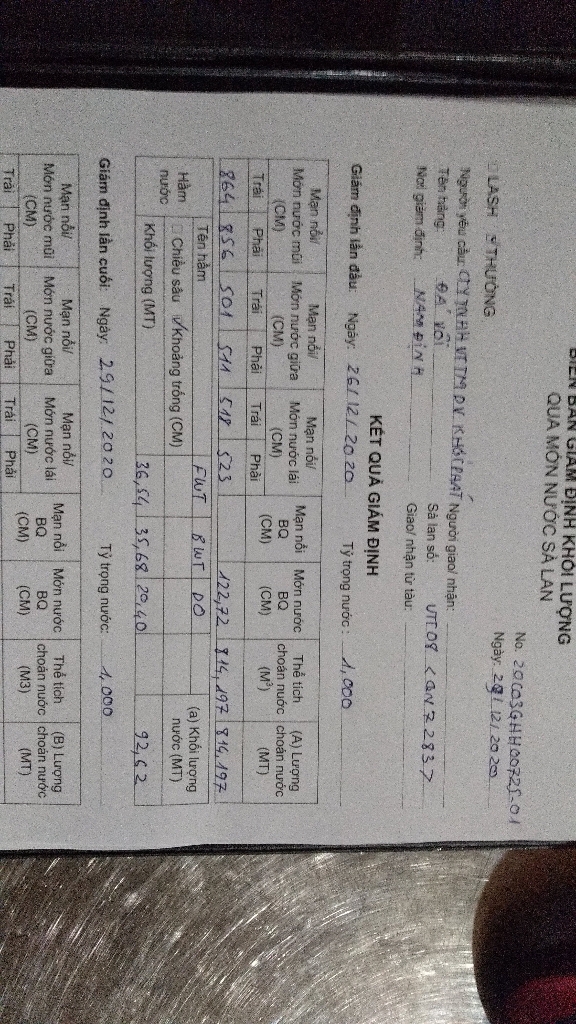 BIÊN BẢN GIÁM ĐỊNH KHỐI LƯỢNG
QUA MÓN NƯỚC SÀ LAN
No. 20C03GHH00725-01
Ngày: 29/12/2020
LASH THƯỜNG
Người yêu cầu: CTY TNHH VTTM DV KHÔI PHÁT Người giao/ nhận:
Tên hàng: ĐÁ VÔI Sà lan số: VT09 <QN7283>
Nơi giám định: NAM ĐỊNH Giao/ nhận từ tàu:
KẾT QUẢ GIÁM ĐỊNH
Giám định lần đầu: Ngày: 26/12/2020 Tỷ trọng nước: 1,000
Mạn nổi/ Món nước mũi (CM) Mạn nổi/ Món nước giữa (CM) Mạn nổi/ Món nước lái (CM) Mạn nổi BQ (CM) Món nước BQ (CM) Thể tích choán nước (M³) (A) Lượng choán nước (MT)
Trái Phải Trái Phải Trái Phải
864 856 501 511 518 523 122,72 814,197 814,197
Hầm nước Tên hầm FWT BWT DO (a) Khối lượng nước (MT)
Chiều sâu Khoảng trống (CM)
Khối lượng (MT) 36,54 35,68 20,40 92,62
Giám định lần cuối: Ngày: 29/12/2020 Tỷ trọng nước: 1,000
Mạn nổi/ Món nước mũi (CM) Mạn nổi/ Món nước giữa (CM) Mạn nổi/ Món nước lái (CM) Mạn nổi BQ (CM) Món nước BQ (CM) Thể tích choán nước (M3) (B) Lượng choán nước (MT)
Trái Phải Trái Phải Trái Phải